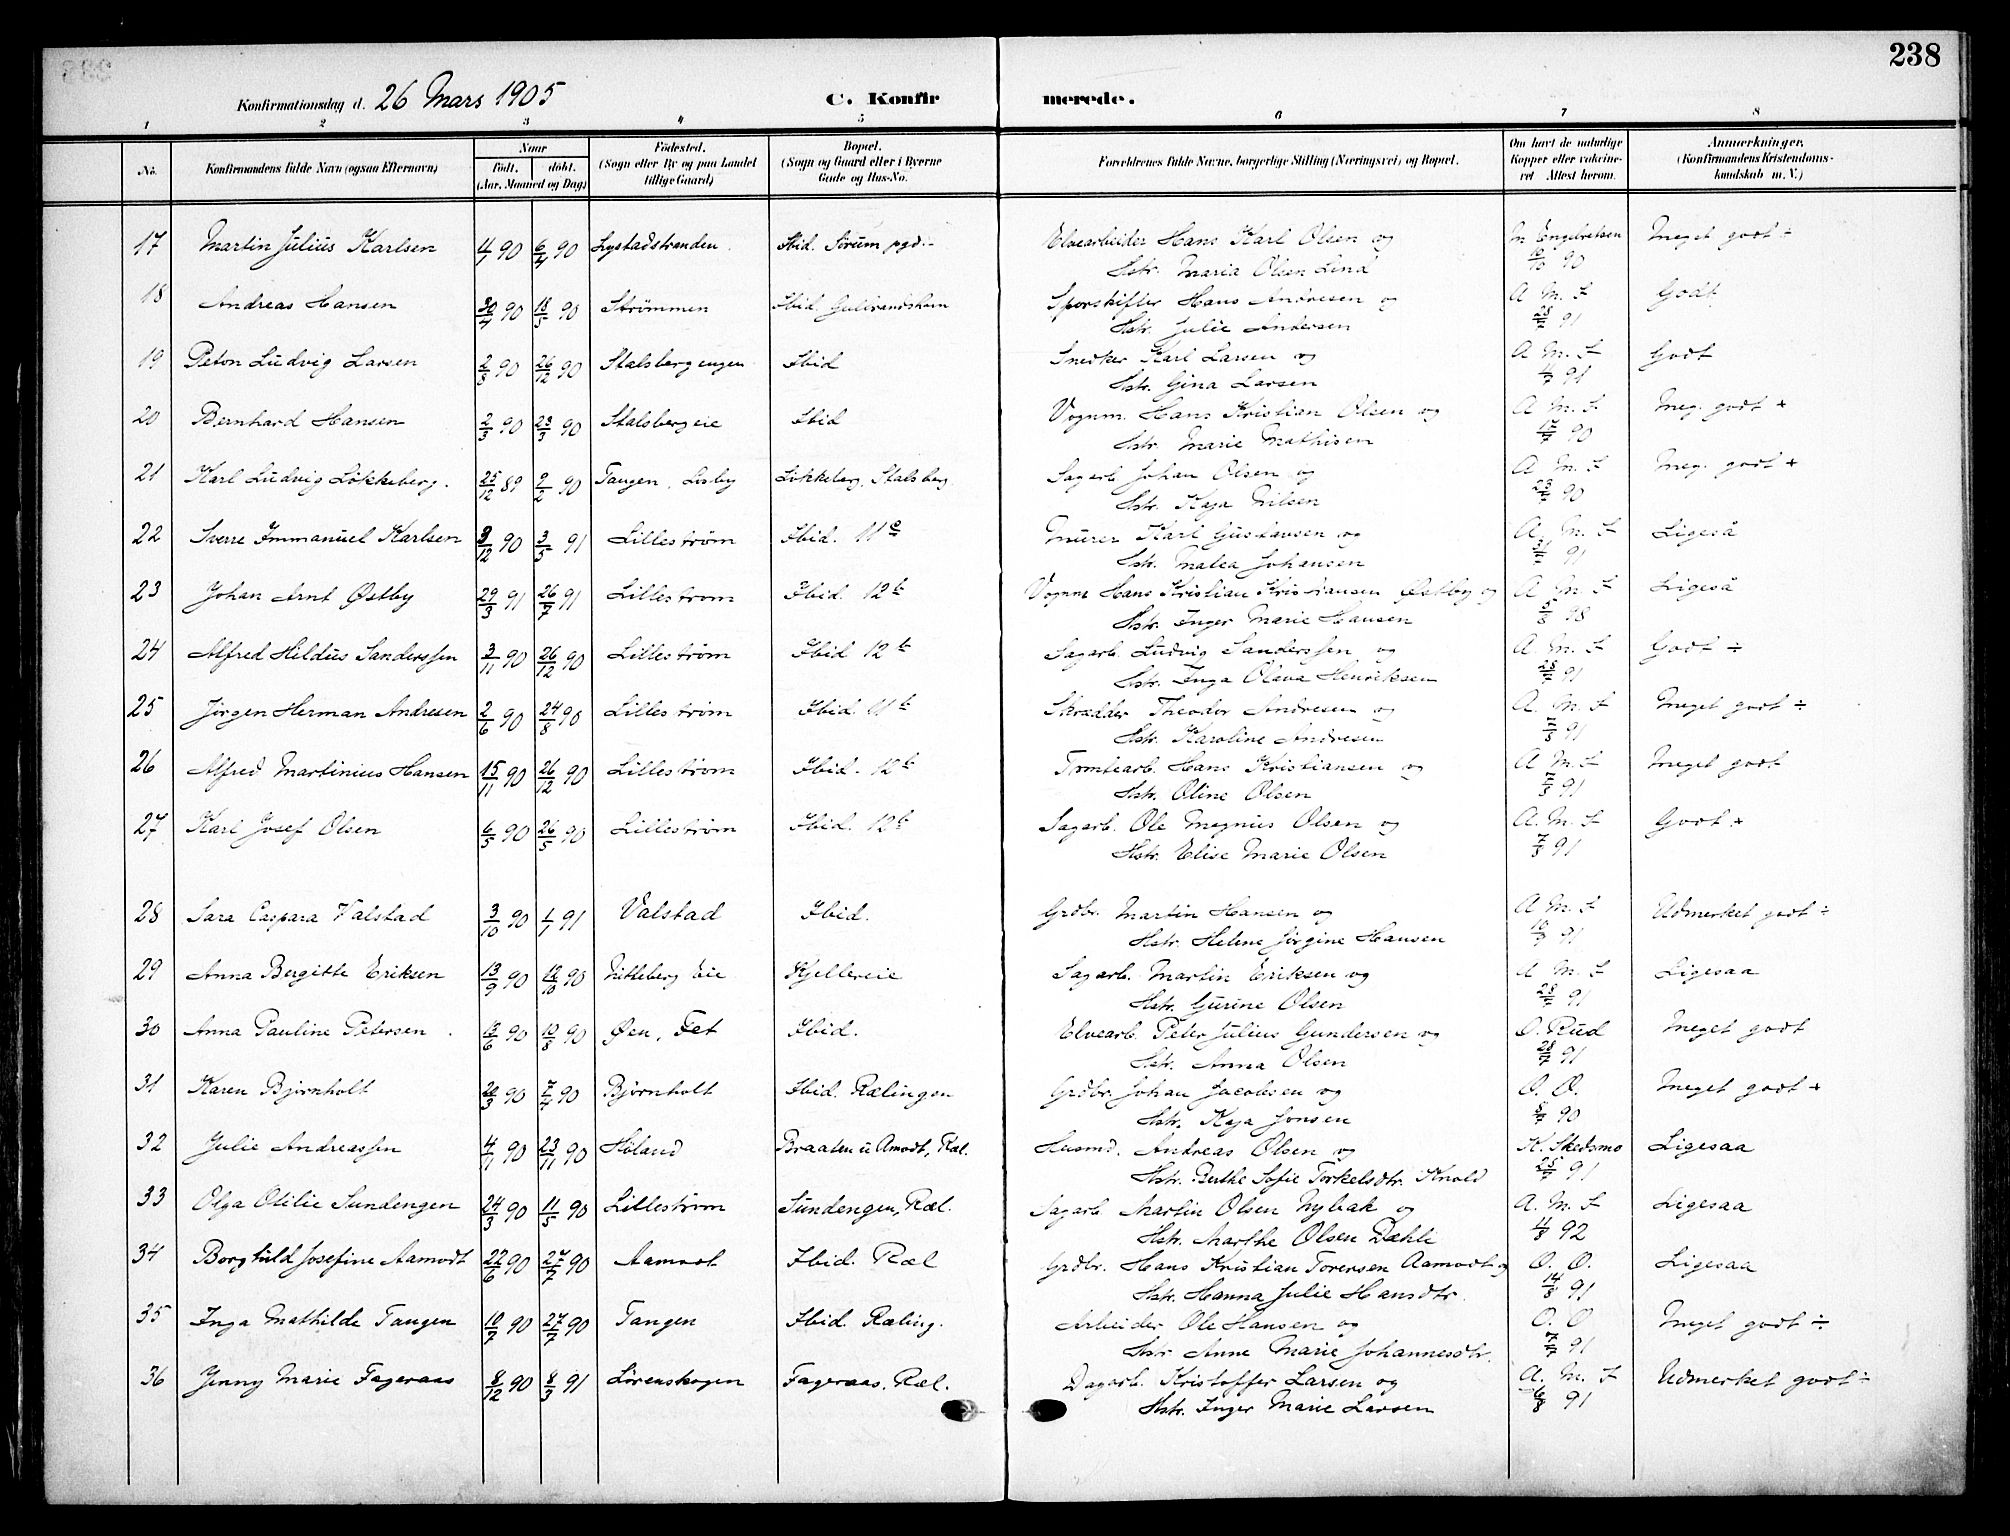 238
Konfirmationsdag d. 26 Mars 1905 C. Konfirmerede.
1 2 3 4 5 6 7 8
No. Konfirmandens fulde Navn (ogsaa Efternavn) Naar født. døbt. (Aar, Maaned og Dag) Fødested. (Sogn eller By og paa Landet tillige Gaard) Bopæl. (Sogn og Gaard eller i Byerne Gade og Hus-No. Forældrenes fulde Navne, borgerlige Stilling (Næringsvei) og Bopæl. Om havt de naturlige Kopper eller vakcineret Attest herom. Anmærkninger. (Konfirmandens Kristendomskundskab m. V.)
17 Martin Julius Karlsen 4/1 90 6/4 90 Lystadstranden Ibid. Sørum pgd. Elvearbeider Hans Karl Olsen og M. Engebretsen Meget godt ÷
Hstr. Maria Olsen Lund 90
18 Andreas Hansen 30/4 90 18/5 90 Strømmen Ibid. Sporskifter Hans Andresen og A. M. S Godt
Hstr. Julie Andersen 28/7 91
19 Peton Ludvig Larsen 2/8 90 26/12 90 Stalsbergengen Ibid Snedker Karl Larsen og A. M. S Godt
Hstr. Gina Larsen 4/7 91
20 Bernhard Hansen 2/3 90 23/3 90 Stalsbergeie Ibid Vognm. Hans Kristian Olsen og A. M. S. Meg. godt +
Hstr. Marie Mathisen 17/7 90
21 Karl Ludvig Løkkeberg. 25/12 89 2/2 90 Tangen, Losby Løkkeberg, Stalsberg. Sagarb. Johan Olsen og A. M. S Meg. godt +
Hstr. Kaja Nilsen 90
22 Sverre Immanuel Karlsen 3/12 90 3/5 91 Lillestrøm Ibid. 11 Murer Karl Gustavsen og A. M. S Ligeså
Hstr. Malea Johansen 91
23 Johan Arnt Østby 29/3 91 26/7 91 Lillestrøm Ibid 12 b Vognm Hans Kristian Kristiansen Østby og A. M. S Ligeså
Hstr. Inger Marie Hansen 5/8 98
24 Alfred Hildus Sanderssen 3/11 90 26/12 90 Lillestrøm Ibid 12 b Sagarb. Ludvig Sanderssen og A. M. S Godt ÷
Hstr. Inga Olava Henriksen 28/7 91
25 Jørgen Herman Andresen 2/6 90 24/8 90 Lillestrøm Ibid. 11 b Skrædder Theodor Andresen og A. M. S Meget godt ÷
Hstr. Karoline Andresen 7/8 91
26 Alfred Martinius Hansen 15/11 90 26/12 90 Lillestrøm Ibid. 12 b Tomtearb. Hans Kristiansen og A. M. S Meget godt
Hstr. Oline Olsen 7/8 91
27 Karl Josef Olsen 6/5 90 26/5 90 Lillestrøm Ibid. 12 b Sagarb. Ole Magnus Olsen og A. M. S Godt +
Hstr. Elise Marie Olsen 7/8 91
28 Sara Caspara Valstad 3/10 90 1/1 91 Valstad Ibid. Grdbr. Martin Hansen og A. M. S Udmerket godt ÷
Hstr. Helene Jørgine Hansen 91
29 Anna Bergitte Eriksen 13/9 90 12/10 90 Nitteberg eie Kjellereie Sagarb. Martin Eriksen og A. M. S Ligesaa
Hstr. Gurine Olsen 28/7 91
30 Anna Pauline Petersen 90 10/8 90 Øen, Fet Ibid. Elvearb. Peter Julius Gundersen og O. Rud Meget godt
Hstr. Anna Olsen 28/7 91
31 Karen Bjørnholt 20/3 90 7/4 90 Bjørnholt Ibid. Rælingen Grdbr. Johan Jacobsen og O. O. Meget godt +
Hstr. Kaja Jonsen 90
32 Julie Andreassen 4/11 90 23/11 90 Høland Braaten u Amodt, Ræl. Husmd. Andreas Olsen og K. Skedsmo Ligesaa
Hstr. Berthe Sofie Torkelsdtr. Knold 25/7 91
33 Olga Otilie Sundengen 24/3 90 11/5 90 Lillestrøm Sundengen, Ræl. Sagarb. Martin Olsen Nybak og A. M. S Ligesaa
Hstr. Marthe Olsen Dæhli 4/8 92
34 Borghild Josefine Aamodt 22/6 90 27/7 90 Aamodt Ibid. Ræl Grdbr. Hans Kristian Torersen Aamodt og O. O. Ligesaa
Hstr. Hanna Julie Hansdtr. 14/8 91
35 Inga Mathilde Tangen 10/7 90 27/7 90 Tangen Ibid. Ræling. Arbeider Ole Hansen og O. O Meget godt ÷
Hstr Anne Marie Johannesdtr. 7/7 91
36 Jenny Marie Fageraas 8/12 90 8/3 91 Lørenskogen Fageraas, Ræl. Dagarb. Kristoffer Larsen og A. M. S Udmerket godt ÷
Hstr. Inger Marie Larsen 6/8 91